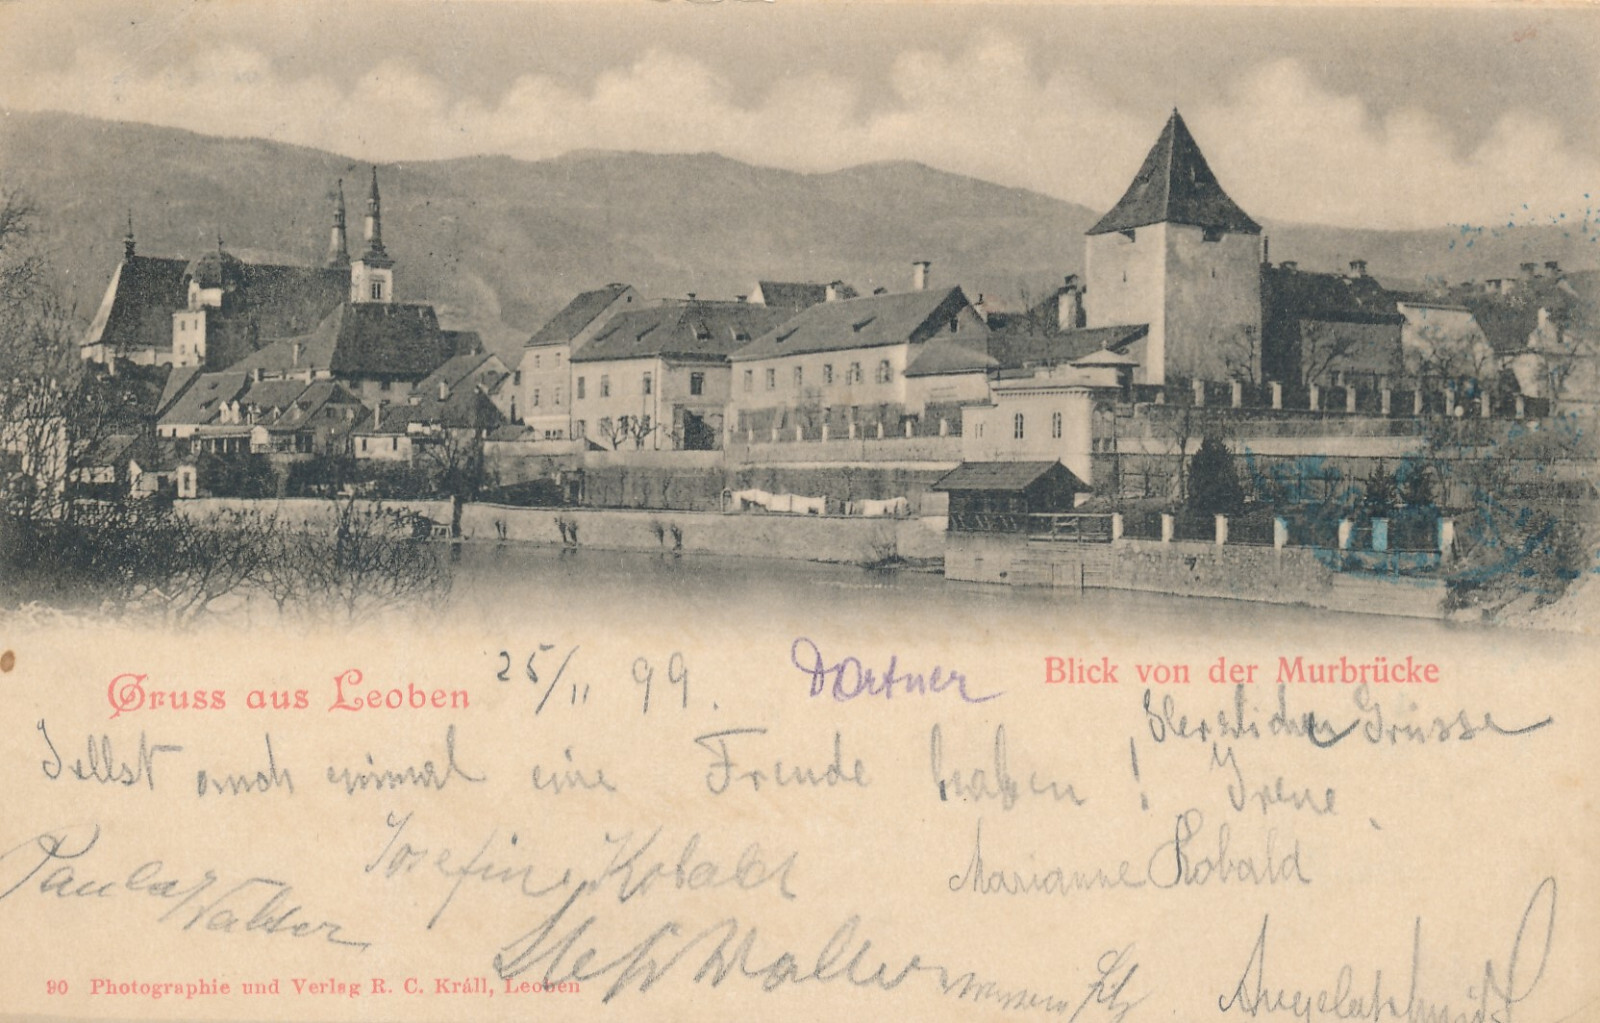 Gruss aus Leoben
25/11 99.
Dortner
Blick von der Murbrücke
Herzlichen Grüsse
Sollst auch einmal eine Freude haben!
Irene.
Josefine Kobald
Marianne Kobald
Paula Walter
Walter
90 Photographie und Verlag R. C. Králl, Leoben